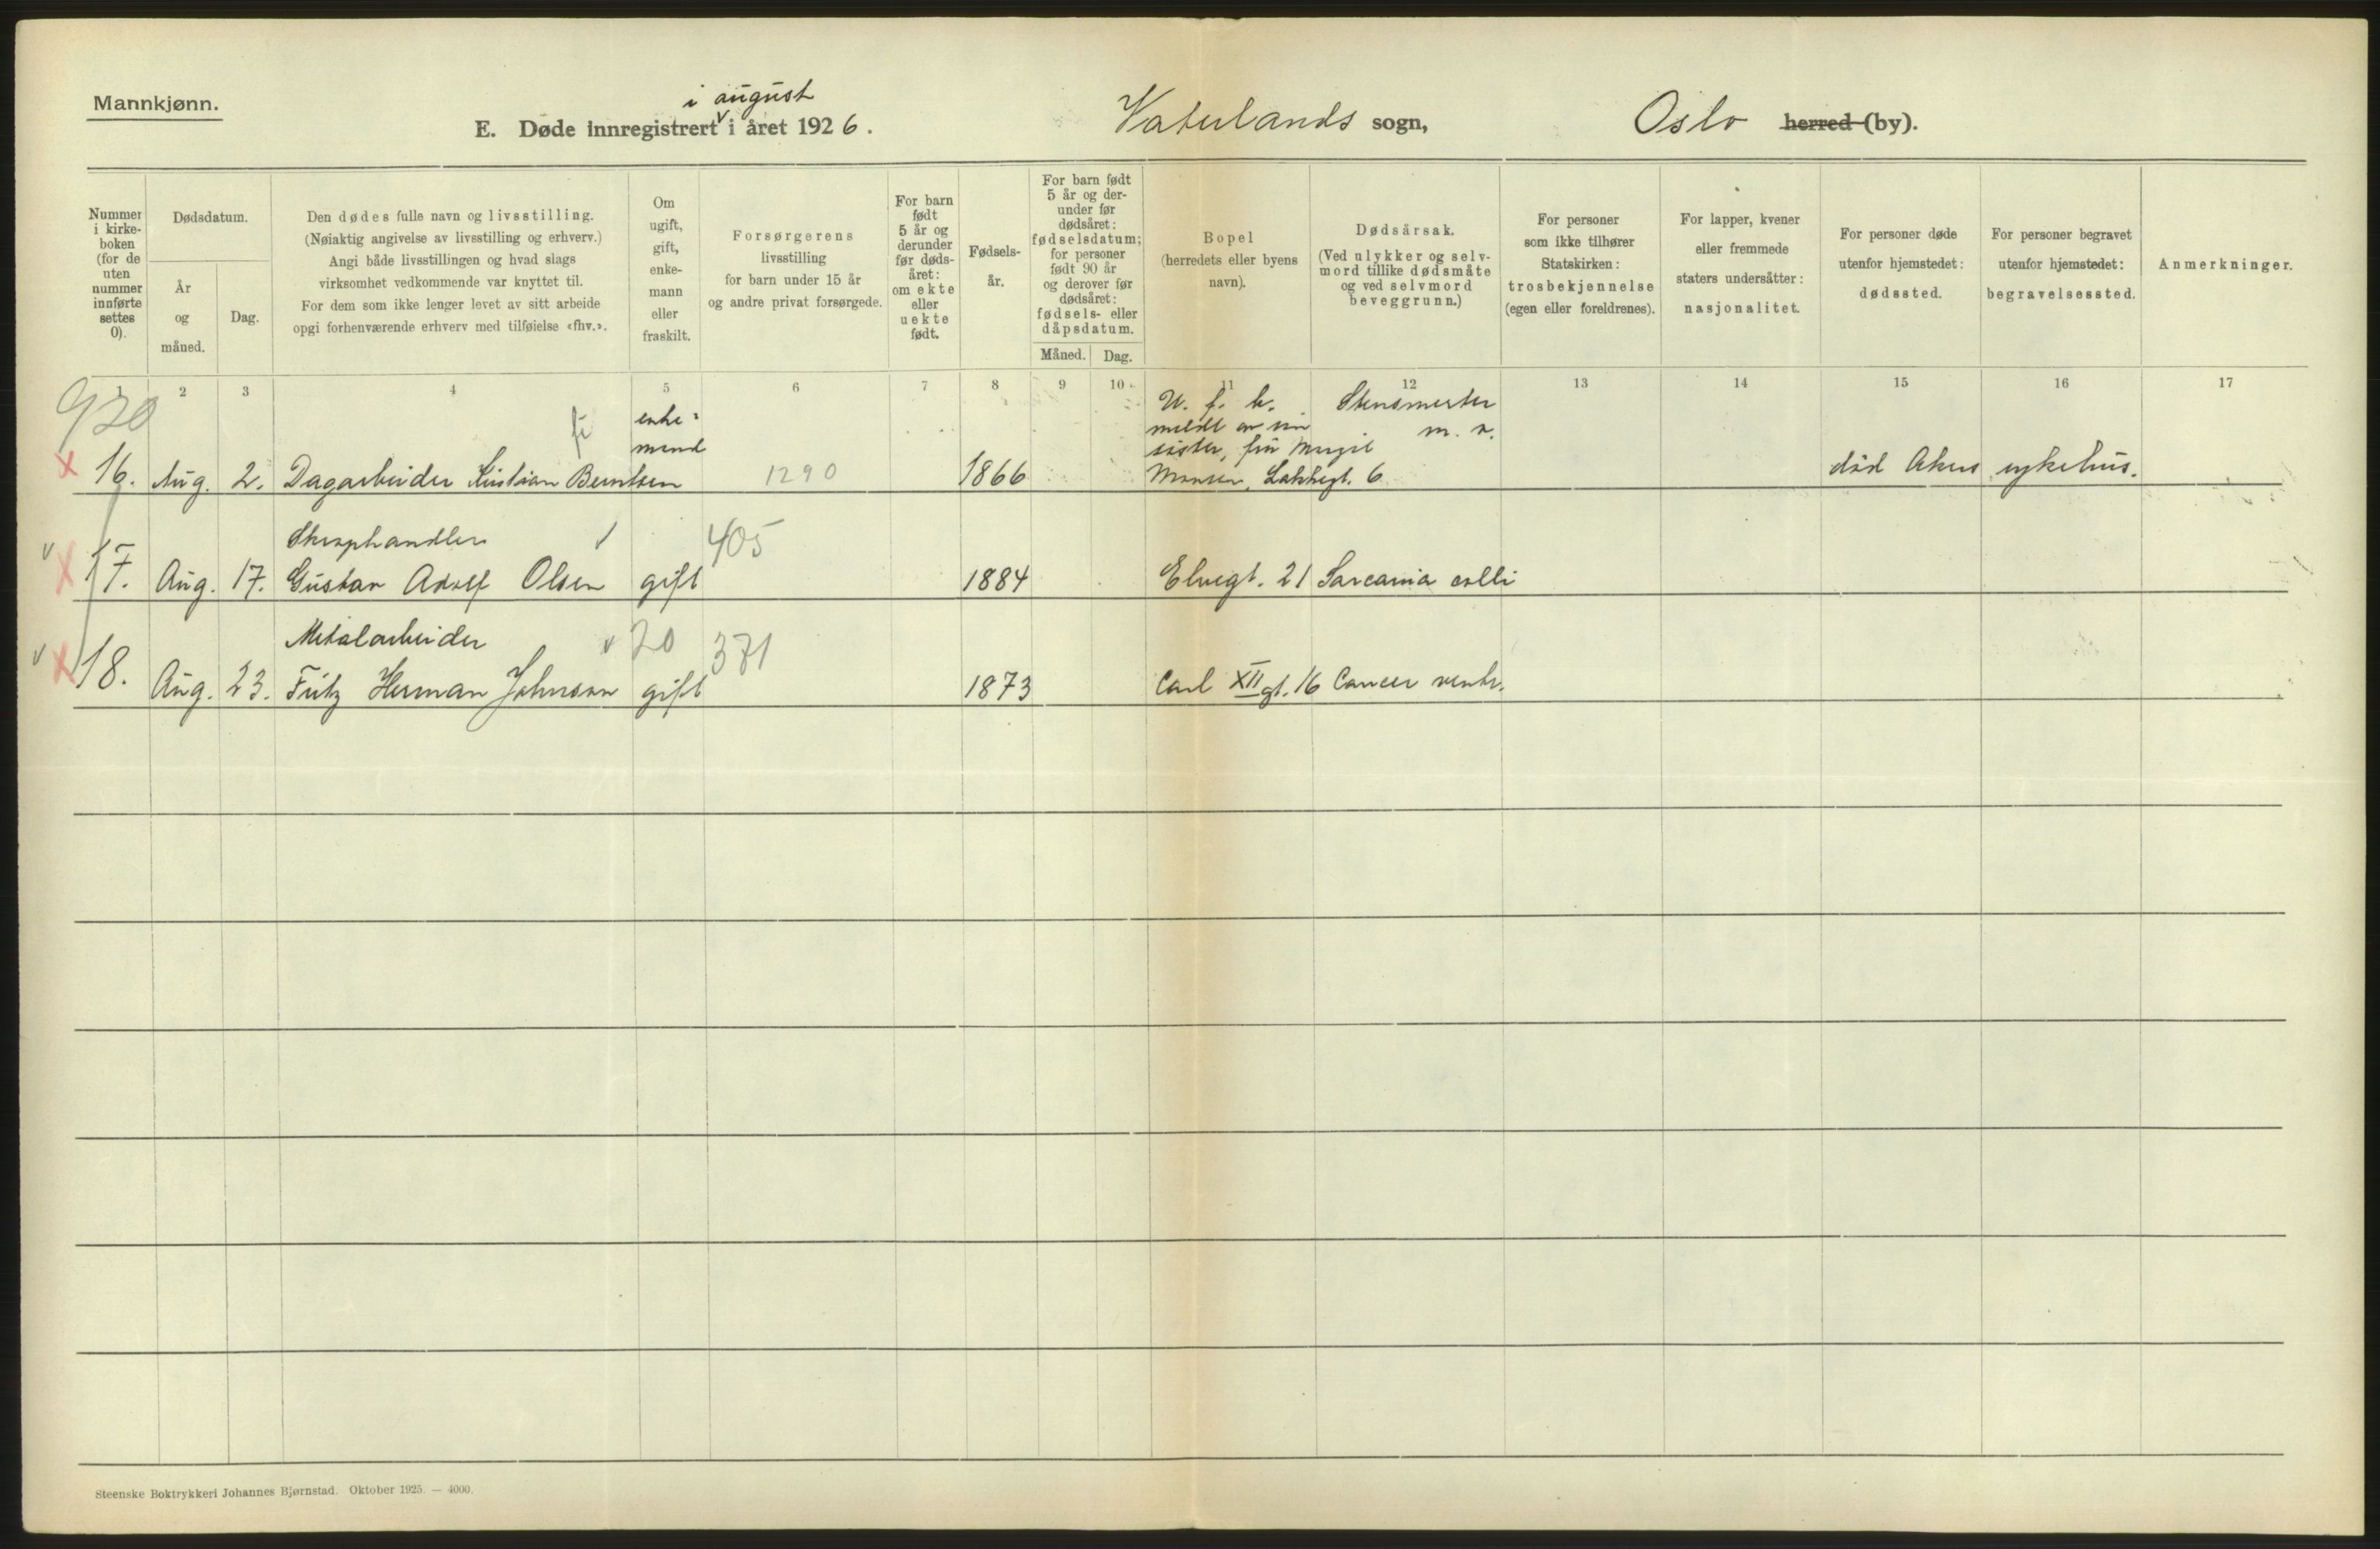 Mannkjønn.
i august
E. Døde innregistrert i året 1926.
Vaterlands sogn,
Oslo herred (by).
Nummer i kirkeboken (for de uten nummer innførte settes 0).
Dødsdatum.
År og måned.
Dag.
Den dødes fulle navn og livsstilling.
(Nøiaktig angivelse av livsstilling og erhverv.)
Angi både livsstillingen og hvad slags
virksomhet vedkommende var knyttet til.
For dem som ikke lenger levet av sitt arbeide
opgi forhenværende erhverv med tilføielse «fhv.».
Om ugift, gift, enkemann eller fraskilt.
Forsørgerens
livsstilling
for barn under 15 år
og andre privat forsørgede.
For barn født 5 år og derunder før dødsåret: om ekte eller uekte født.
Fødselsår.
For barn født 5 år og derunder før dødsåret: fødselsdatum; for personer født 90 år og derover før dødsåret: fødsels- eller dåpsdatum.
Måned. Dag.
Bopel
(herredets eller byens
navn).
Dødsårsak.
(Ved ulykker og selvmord tillike dødsmåte og ved selvmord beveggrunn.)
For personer
som ikke tilhører
Statskirken:
trosbekjennelse
(egen eller foreldrenes).
For lapper, kvener
eller fremmede
staters undersåtter:
nasjonalitet.
For personer døde
utenfor hjemstedet:
dødssted.
For personer begravet
utenfor hjemstedet:
begravelsessted.
Anmerkninger.
1 2 3 4 5 6 7 8 9 10 11 12 13 14 15 16 17
920
fi
enke=
mand
U. f. b.
meldt av sin
søster, frü Margit
Stensmerter
m. v.
× 16. Aug. 2. Dagarbeider Kristian Berntsen 1290 1866 Monsen, Lakkegt. 6 død Akers sykehus.
Skraphandler 405
v × 17. Aug. 17. Gustav Adolf Olsen gift 1884 Elvegt. 21 Sarcania colli
Metalarbeider v 20 371
v × 18. Aug. 23. Fritz Herman Johnson gift 1873 Carl XII gt. 16 Cancer ventr.
Steenske Boktrykkeri Johannes Bjørnstad. Oktober 1925. — 4000.